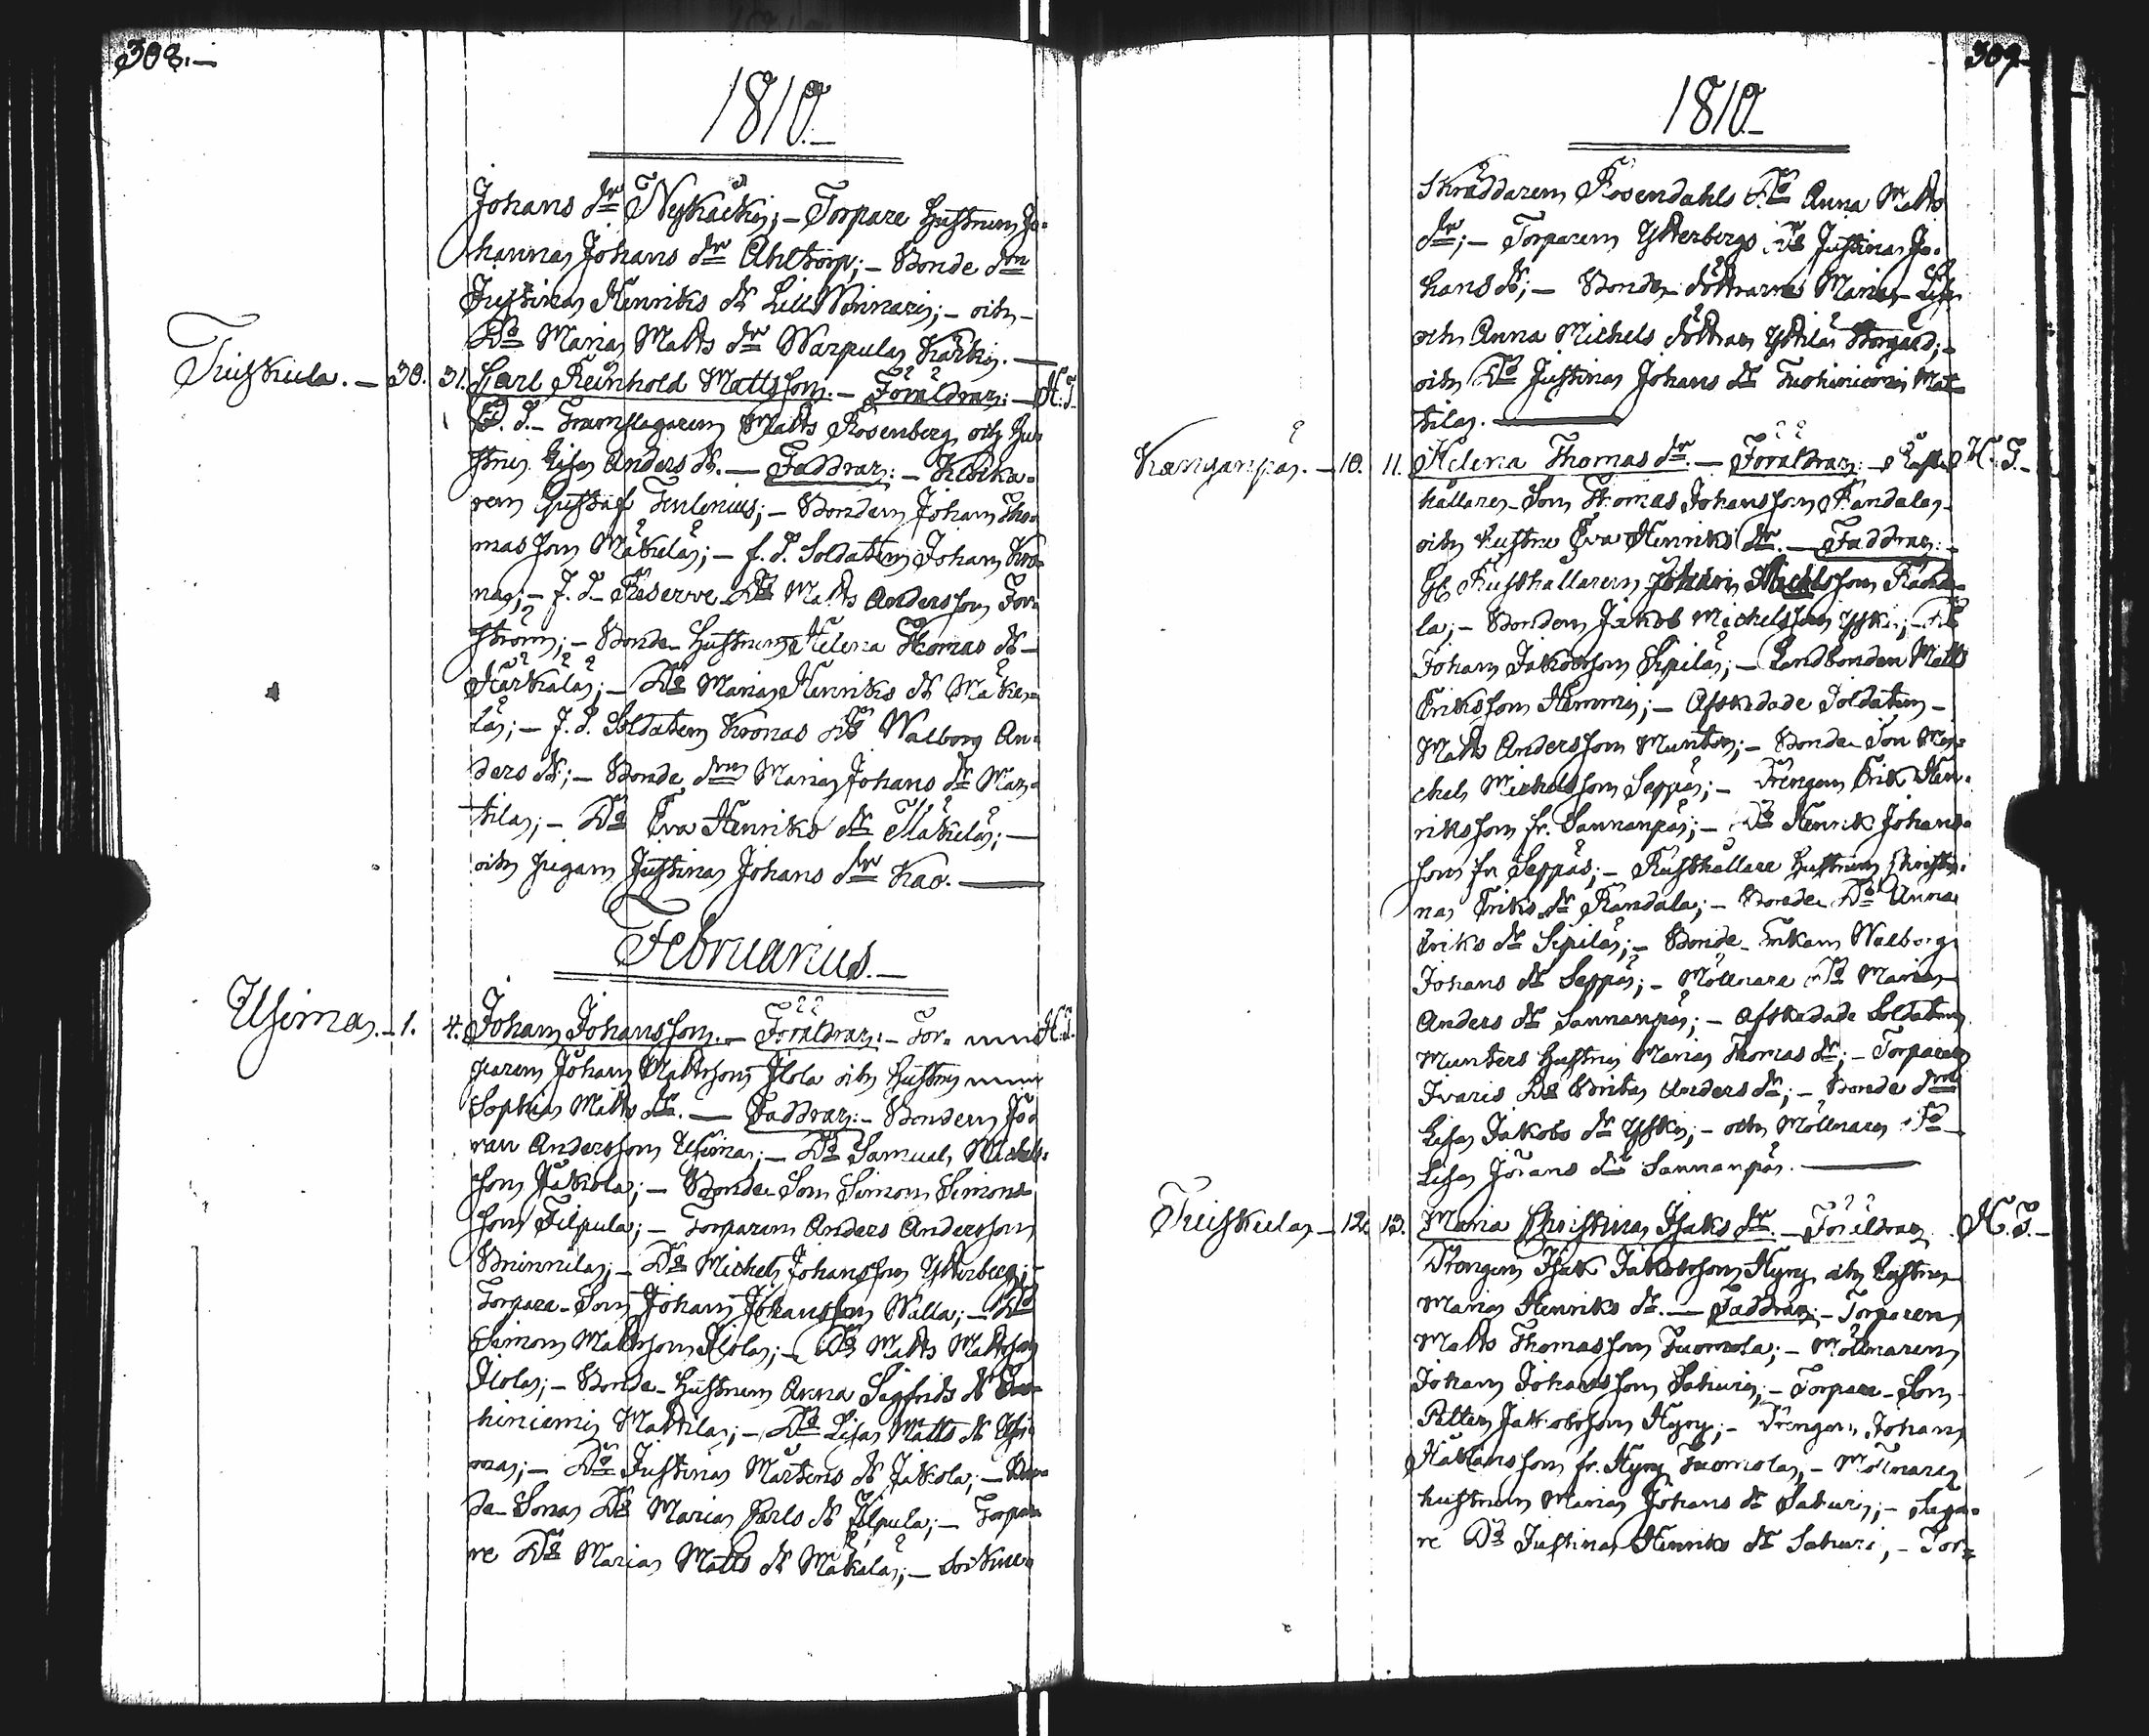 308.—
1810.—
Johans dr Nyskäcki; — Torpare Hustrun Jo-
hanna Johans dr Ahltorp; — Bonde drn
Justina Henriks dr Lill Winnari; — och
Do Maria Matts dr Warpula Kärki. —
Tuiskula. — 30. 31. Carl Reinhold Mattsson. — Föräldrar: — H. T.
F. d. Trumslagaren Matts Rosenberg och Hu-
stru Lisa Anders dr. — Faddrar: — Klocka-
ren Gustaf Tenlenius; — Bonden Johan Tho-
masson Mäkelä; — f. d. Soldaten Johan Kro-
nas; — f. d. Reserve Do Matts Andersson For-
ström; — Bonde Hustrun Helena Thomas dr
Kärkälä; — Do Maria Henriks dr Mäke-
lä; — f. d. Soldaten Kronas Do Walborg An-
ders dr; — Bonde drn Maria Johans dr Mar-
tila; — Do Eva Henriks dr Mäkelä; —
och pigan Justina Johans dr Kao. —
Februarius. —
Ulsima. — 1. 4. Johan Johansson. — Föräldrar: — Tor- H. T.
paren Johan Mattsson Ilola och Hustru
Sophia Matts dr. — Faddrar: — Bonden Jö-
ran Andersson Ulsima; — Do Samuel Michels-
son Jakola; — Bonde Son Simon Simons-
son Filpula; — Torparen Anders Andersson
Brinnilä; — Do Michel Johansson Ytterberg; —
Torpare-Son Johan Johansson Walla; — Do
Simon Mattsson Ilola; — Do Matts Mattsson
Ilola; — Bonde-Hustrun Anna Sigfrids dr
hiniemi Mattila; — Do Lisa Matts dr Ulsi-
ma; — Do Justina Mårtens dr Jakola; — Bon-
de-Sonas Do Maria Carls dr Filpula; — Torpa-
re Do Maria Matts dr Mäkälä; —
309.—
1810.—
Skräddaren Rosendahls Do Anna Matts
dr; — Torparen Ytterbergs Do Justina Jo-
hans dr; — Bonde-döttrarna Maria Lisa
och Anna Michels döttrar Yttilä Storgård; —
och Do Justina Johans dr Tuohiniemi Mat-
tila. —
Kanganpää. — 10. 11. Helena Thomas dr. — Föräldrar: — Rust- H. T. —
hållare-Son Thomas Johansson Randala
och Hustru Eva Henriks dr. — Faddrar: —
Rusthållaren Johan Michelsson Randa-
la; — Bonden Jakob Michelsson Yski; — Do
Johan Jakobsson Sipilä; — Landbonden Matts
Eriksson Hemmi; — Afskedade Soldaten —
Matts Andersson Munter; — Bonde Son Mi-
chel Michelsson Seppä; — Drengen Erik Hen-
riksson fr. Sannanpää; — Do Henrik Johans-
son fr. Seppä; — Rusthållare Hustrun Christi-
na Eriks dr Randala; — Bonde Do Anna
Eriks dr Sipilä; — Bonde-Enkan Walborg
Johans dr Seppä; — Möllnare Do Maria
Anders dr Sannanpää; — Afskedade Soldaten
Munters Hustru Maria Thomas dr; — Torparen
Ivaris Do Brita Anders dr; — Bonde drn
Lisa Jakobs dr Yski; — och Möllnare Do
Lisa Jörans dr Sannanpää. —
Tuiskula — 12. 13. Maria Christina Isaks dr. — Föräldrar H. T. —
Drengen Isak Jakobsson Hyny och Hustru
Maria Henriks dr. — Faddrar: — Torparen
Matts Thomasson Tuomola; — Möllnaren
Johan Johansson Sahuri; — Torpare-Son
Petter Jakobsson Hyny; — Drengen Johan
fr. Hyny Tuomola, — Möllnaren
hustrun Maria Johans dr Sahuri; —
re Do Justina Henriks dr Sahuri, — Tor-